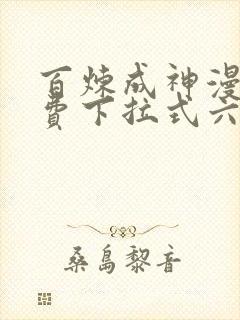 百炼成神漫
费下拉式六
桑島黎音